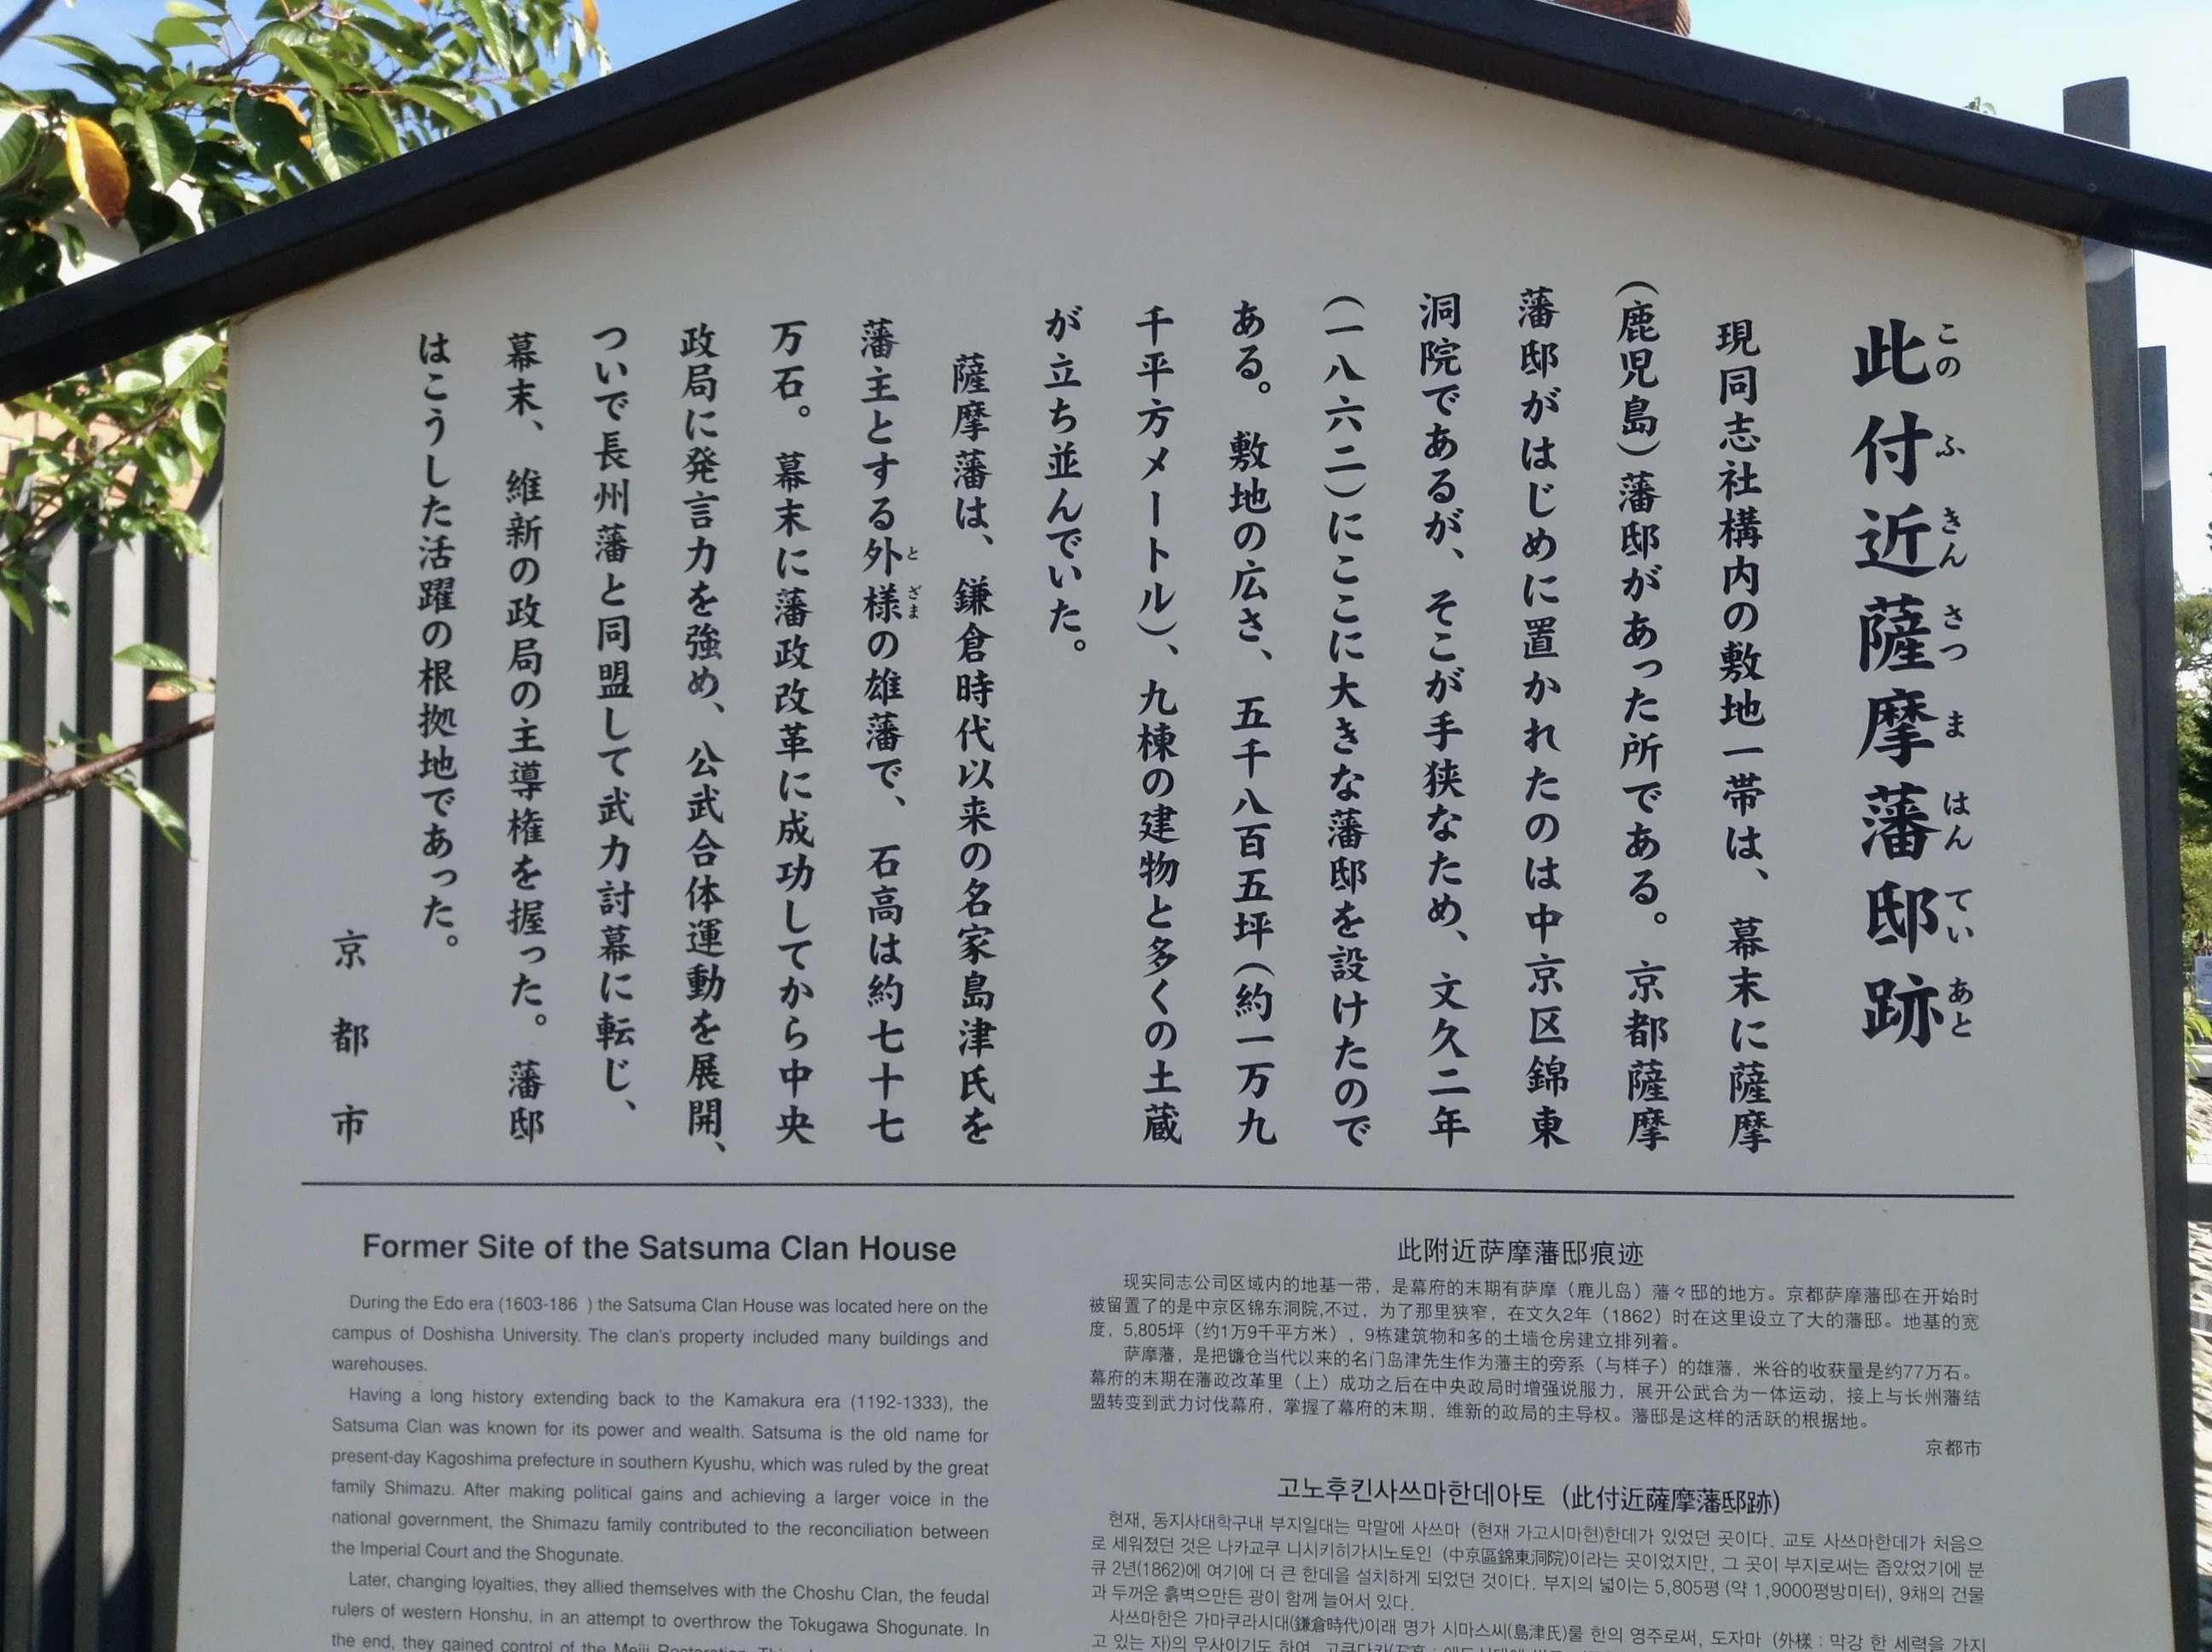 此付近薩摩藩邸跡
このふきんさつまはんていあと
現同志社構内の敷地一帯は、幕末に薩摩
(鹿児島)藩邸があった所である。京都薩摩
藩邸がはじめに置かれたのは中京区錦東
洞院であるが、そこが手狭なため、文久二年
(一八六二)にここに大きな藩邸を設けたので
ある。敷地の広さ、五千八百五坪(約一万九
千平方メートル)、九棟の建物と多くの土蔵
が立ち並んでいた。
薩摩藩は、鎌倉時代以来の名家島津氏を
藩主とする外様の雄藩で、石高は約七十七
とざま
万石。幕末に藩政改革に成功してから中央
政局に発言力を強め、公武合体運動を展開、
ついで長州藩と同盟して武力討幕に転じ、
幕末、維新の政局の主導権を握った。藩邸
はこうした活躍の根拠地であった。
京都市
Former Site of the Satsuma Clan House
During the Edo era (1603-186 ) the Satsuma Clan House was located here on the
campus of Doshisha University. The clan's property included many buildings and
warehouses.
Having a long history extending back to the Kamakura era (1192-1333), the
Satsuma Clan was known for its power and wealth. Satsuma is the old name for
present-day Kagoshima prefecture in southern Kyushu, which was ruled by the great
family Shimazu. After making political gains and achieving a larger voice in the
national government, the Shimazu family contributed to the reconciliation between
the Imperial Court and the Shogunate.
Later, changing loyalties, they allied themselves with the Choshu Clan, the feudal
rulers of western Honshu, in an attempt to overthrow the Tokugawa Shogunate. In
the end, they gained control of the Meiji Restoration.
此附近萨摩藩邸痕迹
现实同志公司区域内的地基一带，是幕府的末期有萨摩（鹿儿岛）藩々邸的地方。京都萨摩藩邸在开始时
被留置了的是中京区锦东洞院,不过，为了那里狭窄，在文久2年（1862）时在这里设立了大的藩邸。地基的宽
度，5,805坪（约1万9千平方米），9栋建筑物和多的土墙仓房建立排列着。
萨摩藩，是把镰仓当代以来的名门岛津先生作为藩主的旁系（与样子）的雄藩，米谷的收获量是约77万石。
幕府的末期在藩政改革里（上）成功之后在中央政局时增强说服力，展开公武合为一体运动，接上与长州藩结
盟转变到武力讨伐幕府，掌握了幕府的末期，维新的政局的主导权。藩邸是这样的活跃的根据地。
京都市
고노후킨사쓰마한데아토 (此付近薩摩藩邸跡)
현재, 동지사대학구내 부지일대는 막말에 사쓰마 (현재 가고시마현)한데가 있었던 곳이다. 교토 사쓰마한데가 처음으
로 세워졌던 것은 나카교쿠 니시키히가시노토인 (中京區錦東洞院)이라는 곳이었지만, 그 곳이 부지로써는 좁았었기에 분
큐 2년(1862)에 여기에 더 큰 한데을 설치하게 되었던 것이다. 부지의 넓이는 5,805평 (약 1,9000평방미터), 9채의 건물
과 두꺼운 흙벽으만든 광이 함께 늘어서 있다.
사쓰마한은 가마쿠라시대(鎌倉時代)이래 명가 시마스씨(島津氏)룰 한의 영주로써, 도자마 (外樣 : 막강 한 세력을 가지
고 있는 자)의 무사이기도 하여,